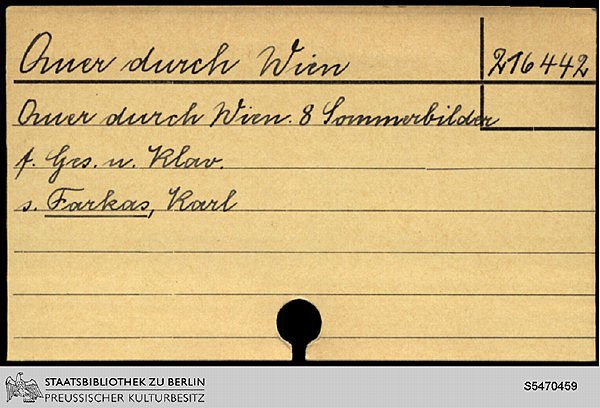 Quer durch Wien
216442
Quer durch Wien. 8 Sommerbilder
f. Ges. u. Klav.
s. Farkas, Karl
STAATSBIBLIOTHEK ZU BERLIN
PREUSSISCHER KULTURBESITZ
S5470459